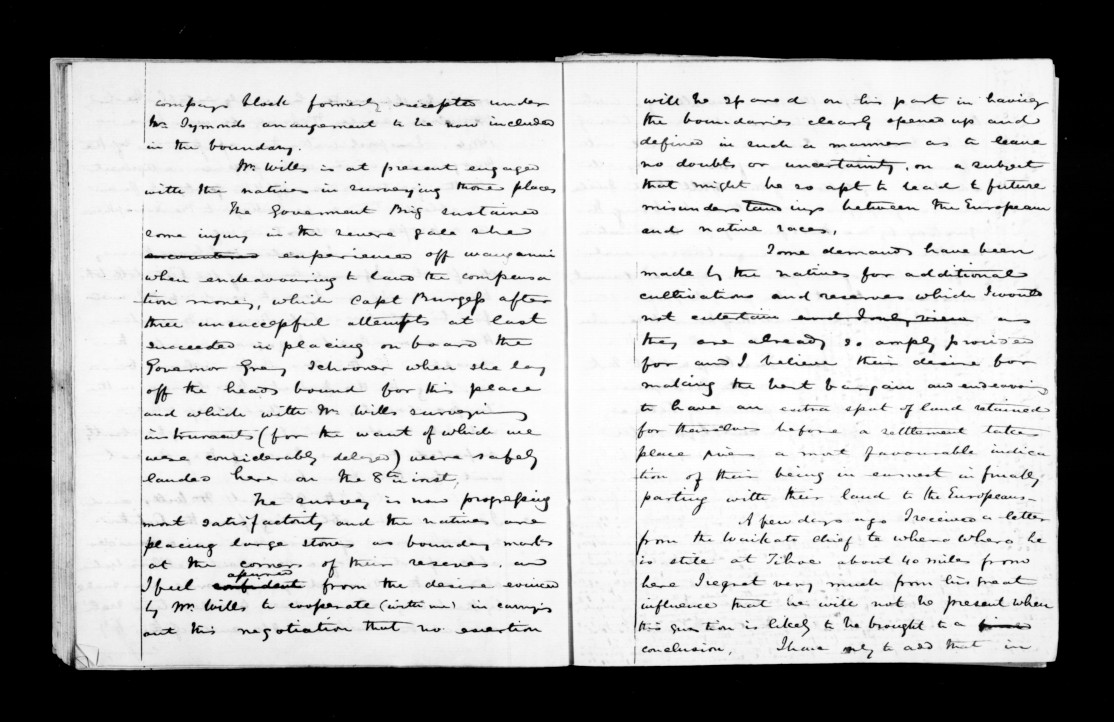 compass block formerly excepted under
Mr Symonds arrangement to be now included
in the boundary.
Mr Wills is at present engaged
with the natives in surveying those places
The Goverment Brig sustained
some injury in the severe gale she
experienced off wanganui
when endeavouring to land the compensa
tion money, which Capt Burgess after
three unsuccessful attempts at last
succeeded in placing on board the
Governor Grey Schooner when she lay
off the heads bound for this place
and which with Mr Wills surveying
instruments (for the want of which we
were considerably delayed) were safely
landed here on the 8th inst,
The survey is now progressing
most satisfactorily and the natives are
placing large stones as boundary marks
at the corners of their reserves. and
I feel assured confident from the desire evinced
by Mr. Wills to cooperate (with me) in carrying
out this negotiation that no exertion
will be spared on his part in having
the boundaries clearly opened up and
defined in such a manner as to leave
no doubts or uncertainty. on a subject
that might be so apt to lead to future
misunderstandings between the European
and native races.
Some demands have been
made by the natives for additional
cultivations and reserves which I would
not entertain and I only view as
they are already so amply provided
for and I believe their desire for
making the best bargain and endeavoring
to have an extra spot of land retained
for themselves before a settlement takes
place gives a most favourable indica
tion of their being in earnest in finally
parting with their land to the Europeans.-
A few days ago I received a letter
from the Waikato chief te whero whero he
is still at Tihoe about 40 miles from
here I regret very much from his great
influence that he will not be present when
this question is likely to be brought to a
conclusion. I have only to add that in